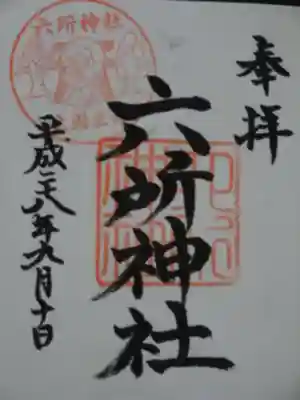 奉拝
六所神社
平成二八年九月十日
六所神社